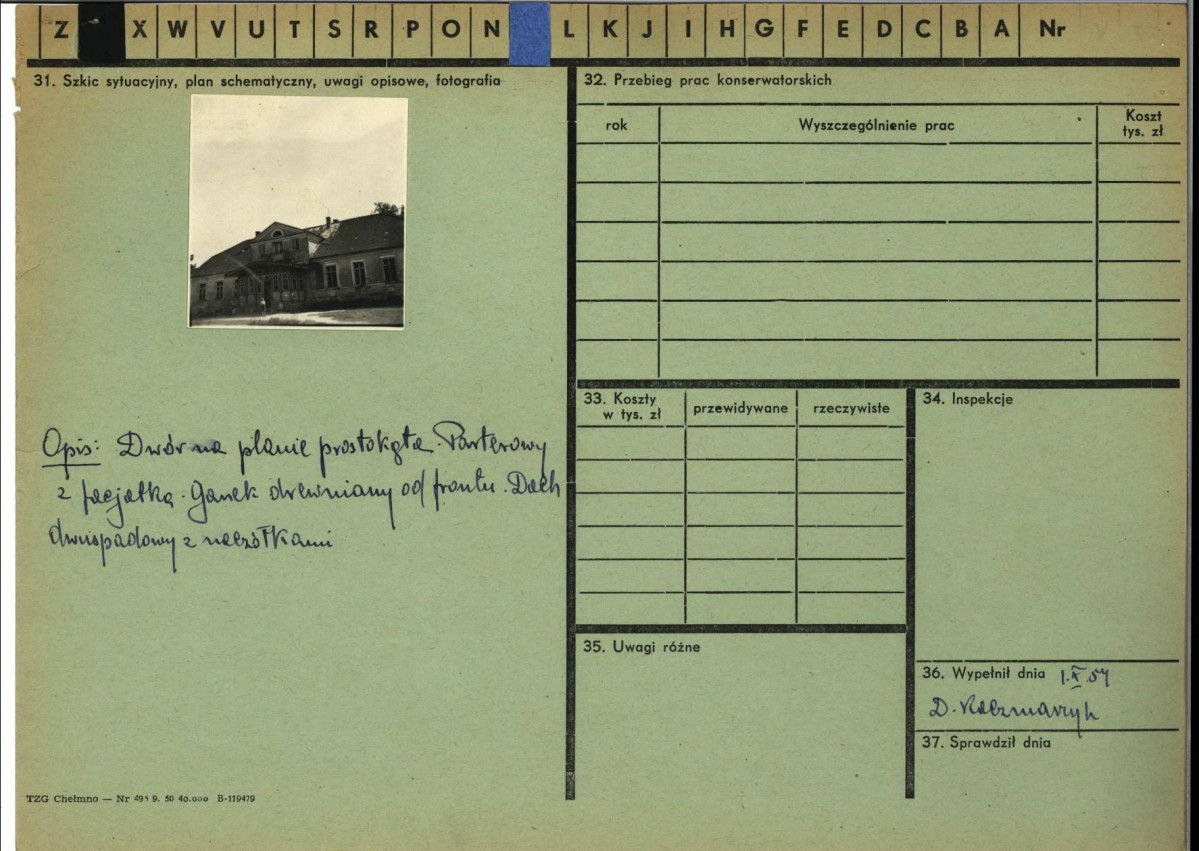 Z X W V U T S R P O N L K J I H G F E D C B A Nr
31. Szkic sytuacyjny, plan schematyczny, uwagi opisowe, fotografia
Opis: Dwór na planie prostokąta. Parterowy
z facjatką. Ganek drewniany od frontu. Dach
dwuspadowy z naczółkami
TZG Chełmno — Nr 9. 50 40.000 B-119479
32. Przebieg prac konserwatorskich
rok Wyszczególnienie prac Koszt
tys. zł
33. Koszty
w tys. zł przewidywane rzeczywiste
34. Inspekcje
35. Uwagi różne
36. Wypełnił dnia 1.X.59
D. Kaczmarzyk
37. Sprawdził dnia